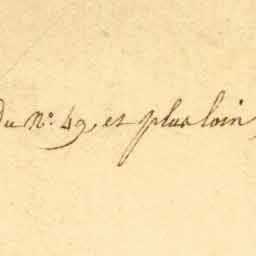 du N.º 49, et plus loin,